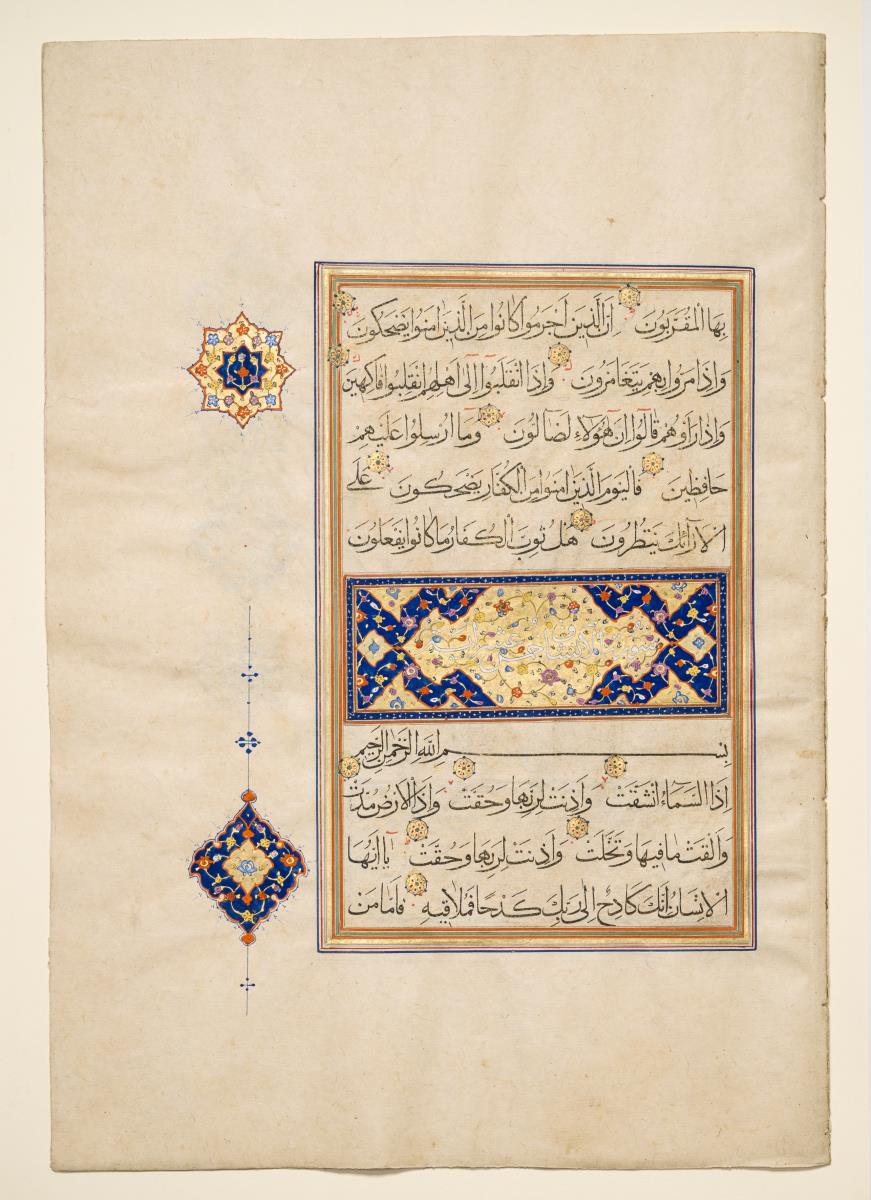 بِهَا الْمُقَرَّبُونَ اِنَّ الَّذِينَ اَجْرَمُوا كَانُوا مِنَ الَّذِينَ اٰمَنُوا يَضْحَكُونَ
وَاِذَا مَرُّوا بِهِمْ يَتَغَامَزُونَ وَاِذَا انْقَلَبُوٓا اِلٰٓى اَهْلِهِمُ انْقَلَبُوا فَاكِهِينَ
وَاِذَا رَاَوْهُمْ قَالُوٓا اِنَّ هٰٓؤُلَاءِ لَضَآلُّونَ وَمَآ اُرْسِلُوا عَلَيْهِمْ
حَافِظِينَ فَالْيَوْمَ الَّذِينَ اٰمَنُوا مِنَ الْكُفَّارِ يَضْحَكُونَ عَلَى
الْاَرَآئِكِ يَنْظُرُونَ هَلْ ثُوِّبَ الْكُفَّارُ مَا كَانُوا يَفْعَلُونَ
سورة الانشقاق
بِسْمِ اللّٰهِ الرَّحْمٰنِ الرَّحِيمِ
اِذَا السَّمَآءُ انْشَقَّتْ وَاَذِنَتْ لِرَبِّهَا وَحُقَّتْ وَاِذَا الْاَرْضُ مُدَّتْ
وَاَلْقَتْ مَا فِيهَا وَتَخَلَّتْ وَاَذِنَتْ لِرَبِّهَا وَحُقَّتْ يَآ اَيُّهَا
الْاِنْسَانُ اِنَّكَ كَادِحٌ اِلٰى رَبِّكَ كَدْحًا فَمُلَاقِيهِ فَاَمَّا مَنْ